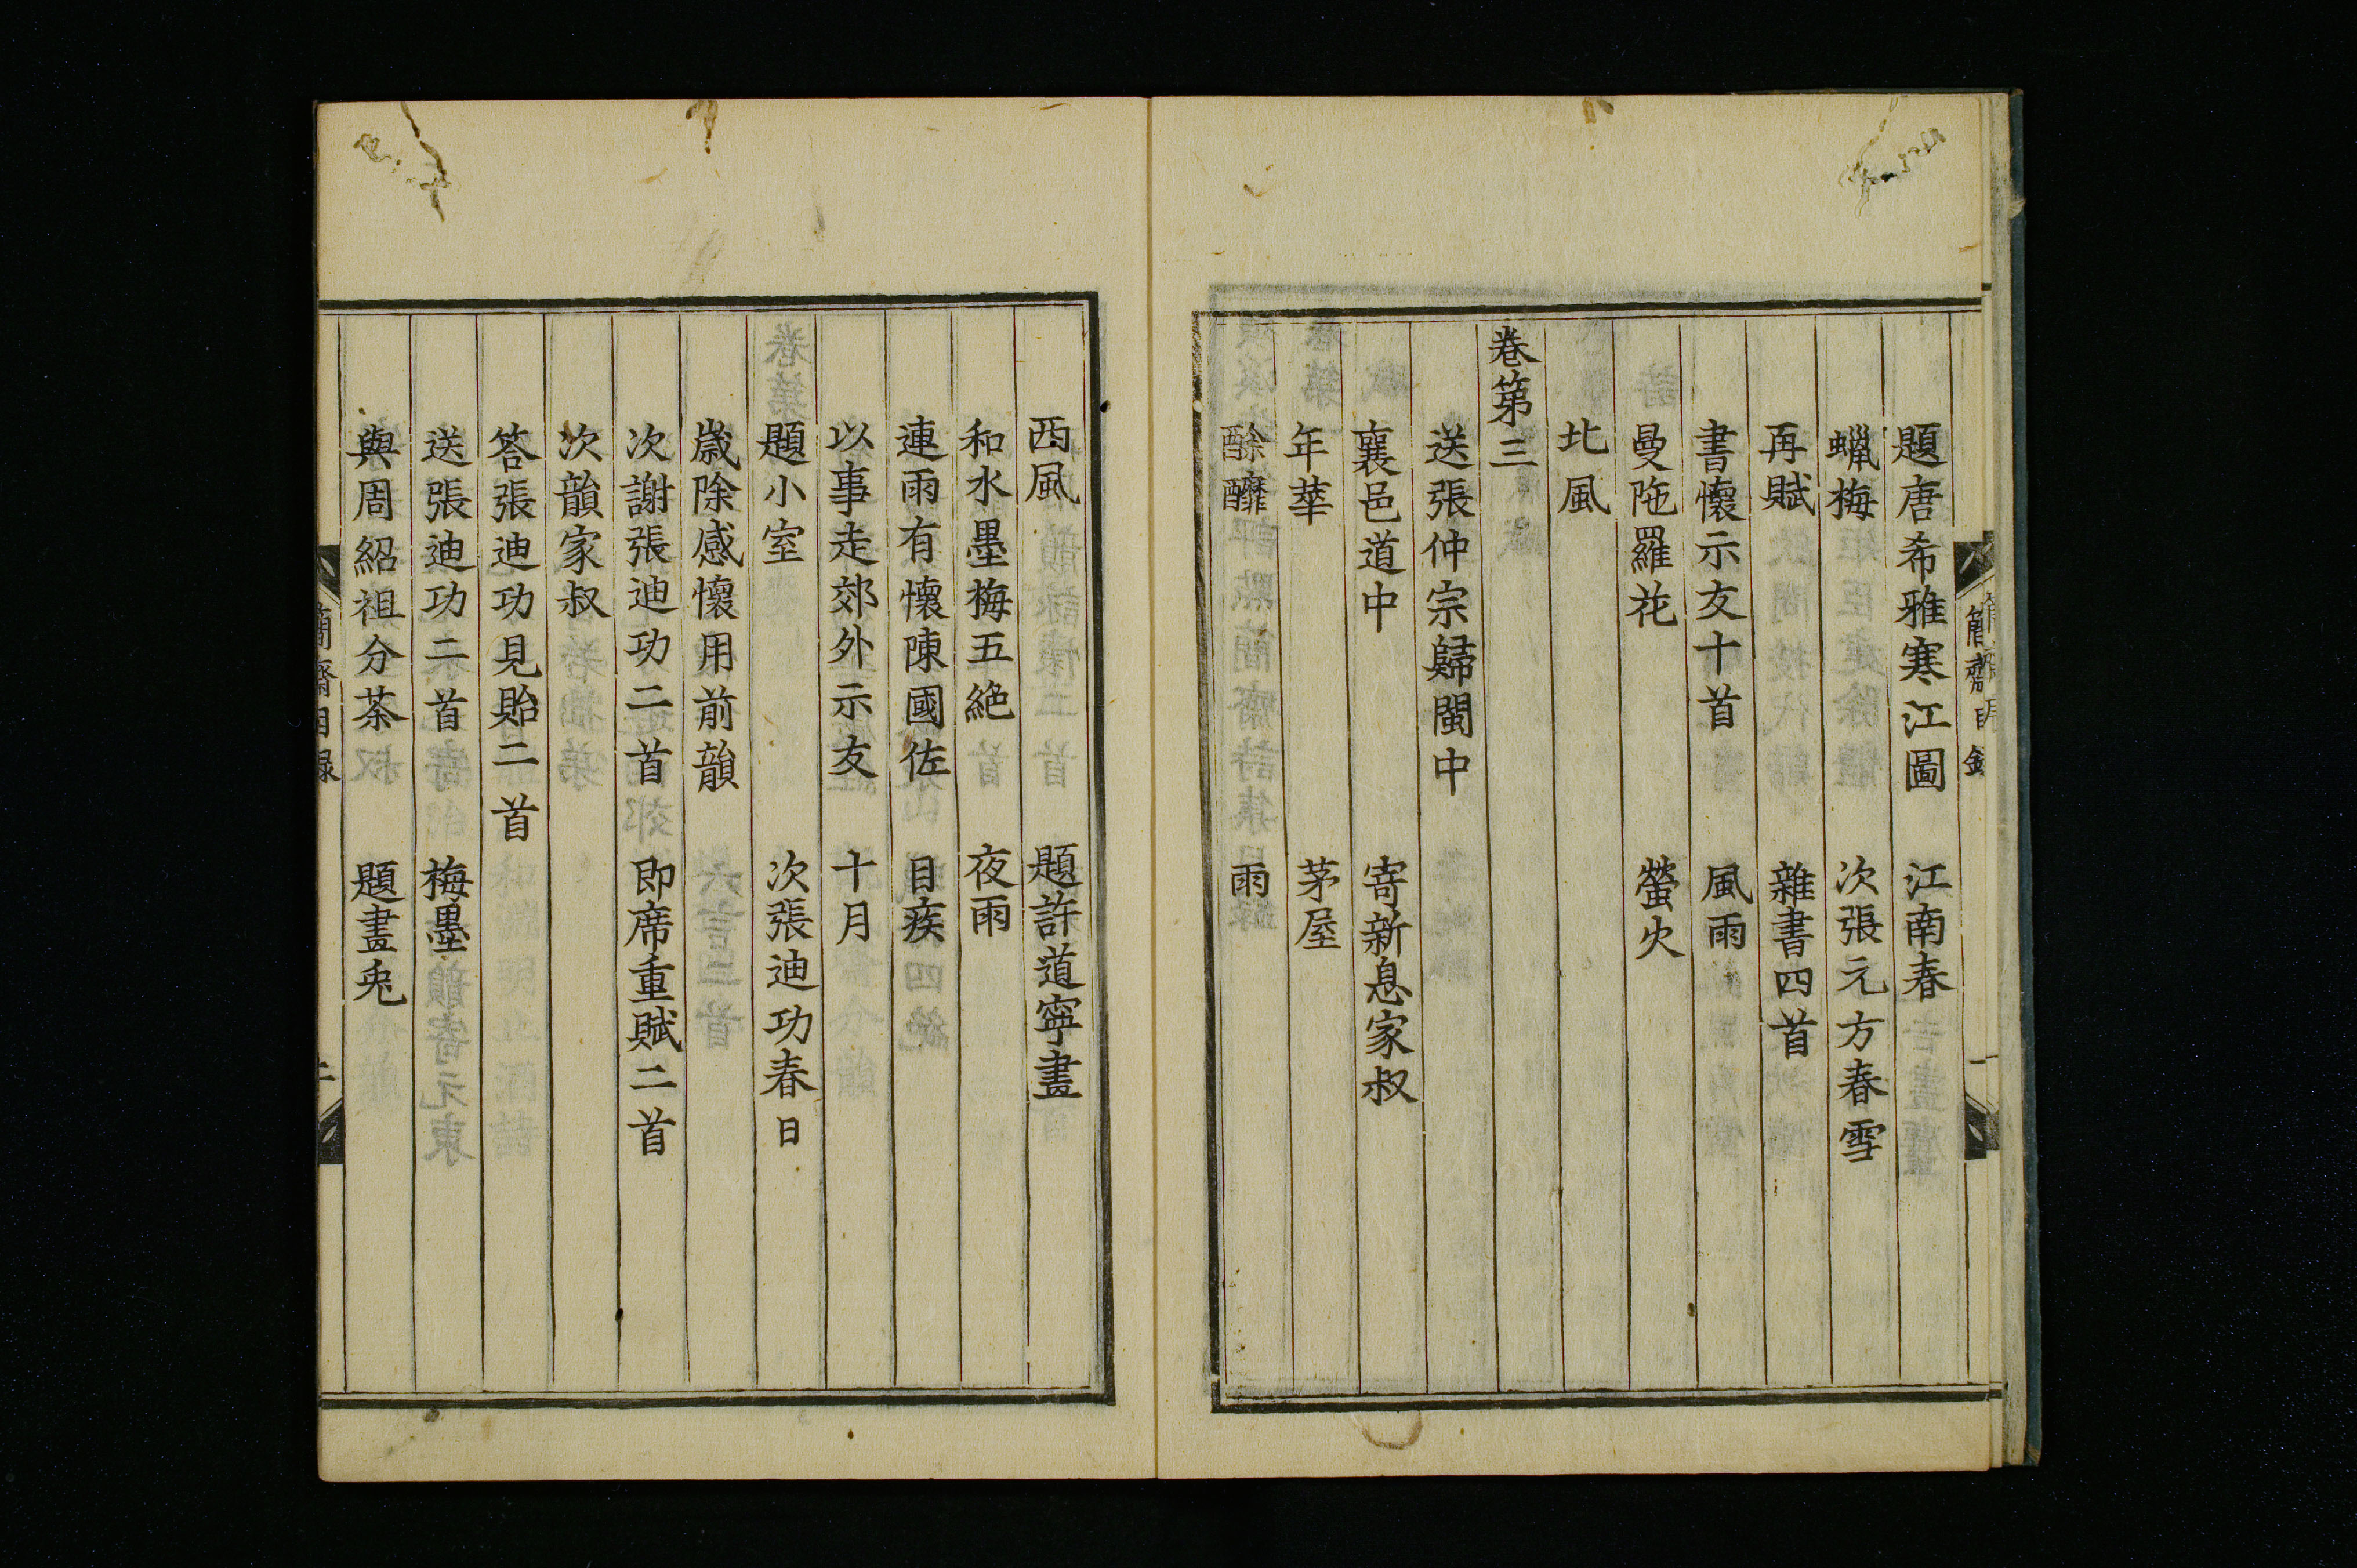 題唐希雅寒江圖　江南春
蠟梅　次張元方春雪
再賦　雜書四首
書懷示友十首　風雨
曼陁羅花　螢火
北風
卷第三
送張仲宗歸閩中
襄邑道中　寄新息家叔
年華　茅屋
酴醾　雨
西風　題許道寧畫
和水墨梅五絶　夜雨
連雨有懷陳國佐　目疾
以事走郊外示友　十月
題小室　次張迪功春日
歲除感懷用前韻
次謝張迪功二首　即席重賦二首
次韻家叔
答張迪功見貽二首
送張迪功二首　梅墨
與周紹祖分茶　題畫兎
簡齋目錄　二